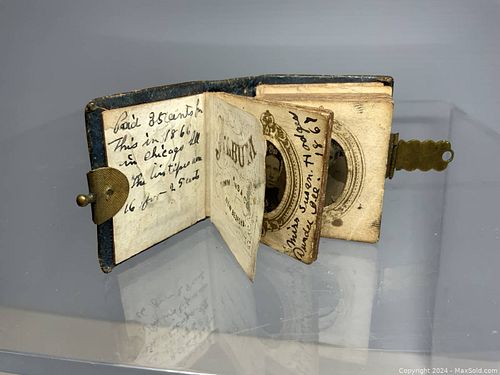 Paid 35 cents for
This in 1866
in Chicago Ill
The tintypes were
16 for 25 cents
ALBUM
Miss Susan. H
Dundee Ill
1867
Copyright 2024 - MaxSold.com